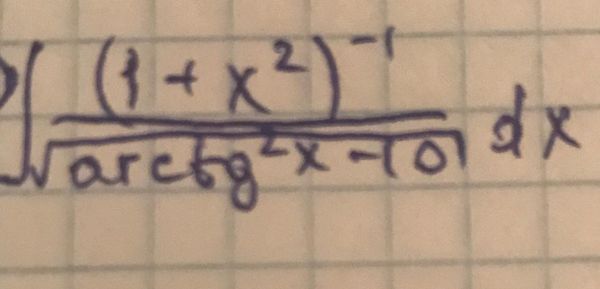 ∫ (1 + x²)⁻¹ / √(arctg²x - 10) dx